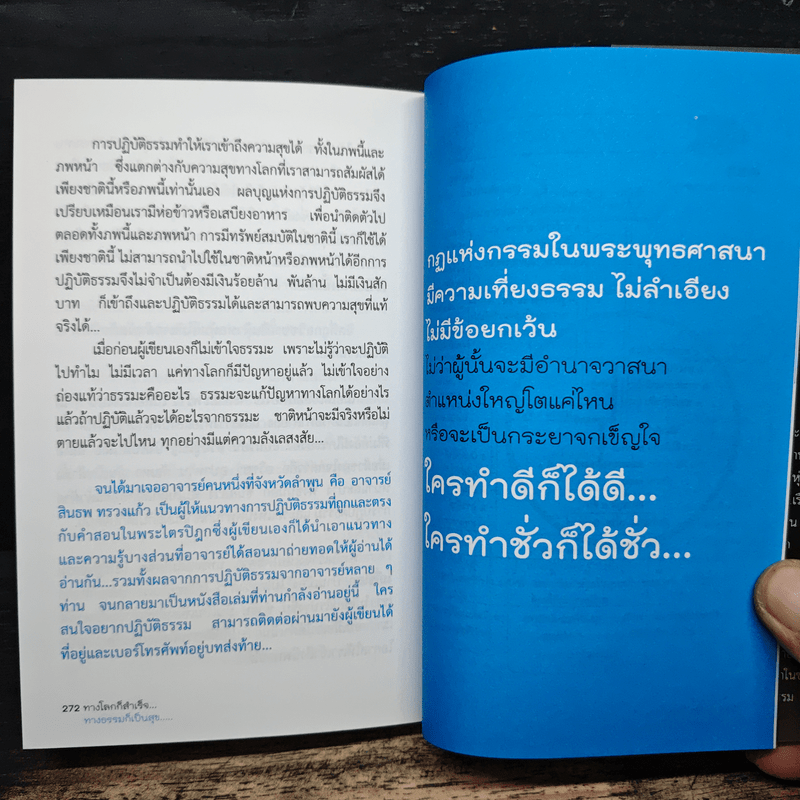 การปฏิบัติธรรมทำให้เราเข้าถึงความสุขได้ ทั้งในภพนี้และ
ภพหน้า ซึ่งแตกต่างกับความสุขทางโลกที่เราสามารถสัมผัสได้
เพียงชาตินี้หรือภพนี้เท่านั้นเอง ผลบุญแห่งการปฏิบัติธรรมจึง
เปรียบเหมือนเรามีห่อข้าวหรือเสบียงอาหาร เพื่อนำติดตัวไป
ตลอดทั้งภพนี้และภพหน้า การมีทรัพย์สมบัติในชาตินี้ เราก็ใช้ได้
เพียงชาตินี้ ไม่สามารถนำไปใช้ในชาติหน้าหรือภพหน้าได้อีกการ
ปฏิบัติธรรมจึงไม่จำเป็นต้องมีเงินร้อยล้าน พันล้าน ไม่มีเงินสัก
บาท ก็เข้าถึงและปฏิบัติธรรมได้และสามารถพบความสุขที่แท้
จริงได้...
เมื่อก่อนผู้เขียนเองก็ไม่เข้าใจธรรมะ เพราะไม่รู้ว่าจะปฏิบัติ
ไปทำไม ไม่มีเวลา แค่ทางโลกก็มีปัญหาอยู่แล้ว ไม่เข้าใจอย่าง
ถ่องแท้ว่าธรรมะคืออะไร ธรรมะจะแก้ปัญหาทางโลกได้อย่างไร
แล้วถ้าปฏิบัติแล้วจะได้อะไรจากธรรมะ ชาติหน้าจะมีจริงหรือไม่
ตายแล้วจะไปไหน ทุกอย่างมีแต่ความลังเลสงสัย...
จนได้มาเจออาจารย์คนหนึ่งที่จังหวัดลำพูน คือ อาจารย์
สินธพ ทรวงแก้ว เป็นผู้ให้แนวทางการปฏิบัติธรรมที่ถูกและตรง
กับคำสอนในพระไตรปิฎกซึ่งผู้เขียนเองก็ได้นำเอาแนวทาง
และความรู้บางส่วนที่อาจารย์ได้สอนมาถ่ายทอดให้ผู้อ่านได้
อ่านกัน...รวมทั้งผลจากการปฏิบัติธรรมจากอาจารย์หลาย ๆ
ท่าน จนกลายมาเป็นหนังสือเล่มที่ท่านกำลังอ่านอยู่นี้ ใคร
สนใจอยากปฏิบัติธรรม สามารถติดต่อผ่านมายังผู้เขียนได้
ที่อยู่และเบอร์โทรศัพท์อยู่บทส่งท้าย...
272 ทางโลกก็สำเร็จ...
ทางธรรมก็เป็นสุข.....
กฏแห่งกรรมในพระพุทธศาสนา
มีความเที่ยงธรรม ไม่ลำเอียง
ไม่มีข้อยกเว้น
ไม่ว่าผู้นั้นจะมีอำนาจวาสนา
ตำแหน่งใหญ่โตแค่ไหน
หรือจะเป็นกระยาจกเข็ญใจ
ใครทำดีก็ได้ดี...
ใครทำชั่วก็ได้ชั่ว...